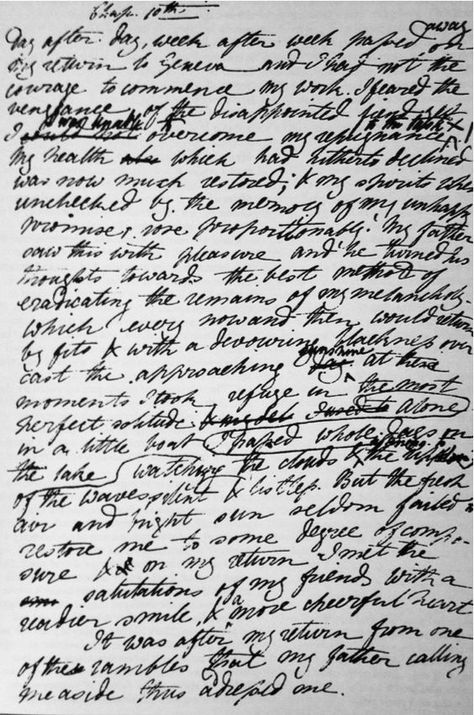 Chap. 10th
away
Day after day, week after week passed on
my return to Geneva and I had not the
courage to commence my work. I feared the
vengeance of the disappointed fiend yet
was unable to to the task
I could not overcome my repugnance
My health which had hitherto declined
was now much restored; & my spirits when
unchecked by the memory of my unhappy
promise, rose proportionably. My father
saw this with pleasure and he turned his
thoughts towards the best method of
eradicating the remains of my melancholy
which every now and then would return
by fits & with a devouring blackness over
sunshine
cast the approaching day at these
moments I took refuge in the most
perfect solitude I used to alone
in a little boat I passed whole days on
the lake watching the clouds & the
of the waves silent & listless. But the fresh
air and bright sun seldom failed to
restore me to some degree of compo-
sure & on my return I met the
salutations of my friends with a
readier smile & a more cheerful heart
It was after my return from one
of these rambles that my father calling
me aside thus adressed me.